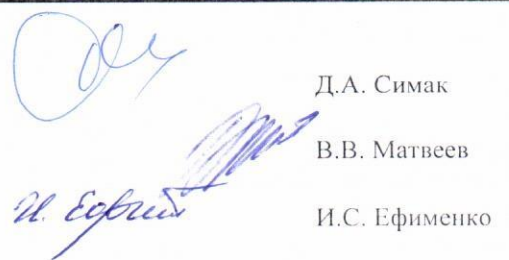 Д.А. Симак
В.В. Матвеев
И.С. Ефименко